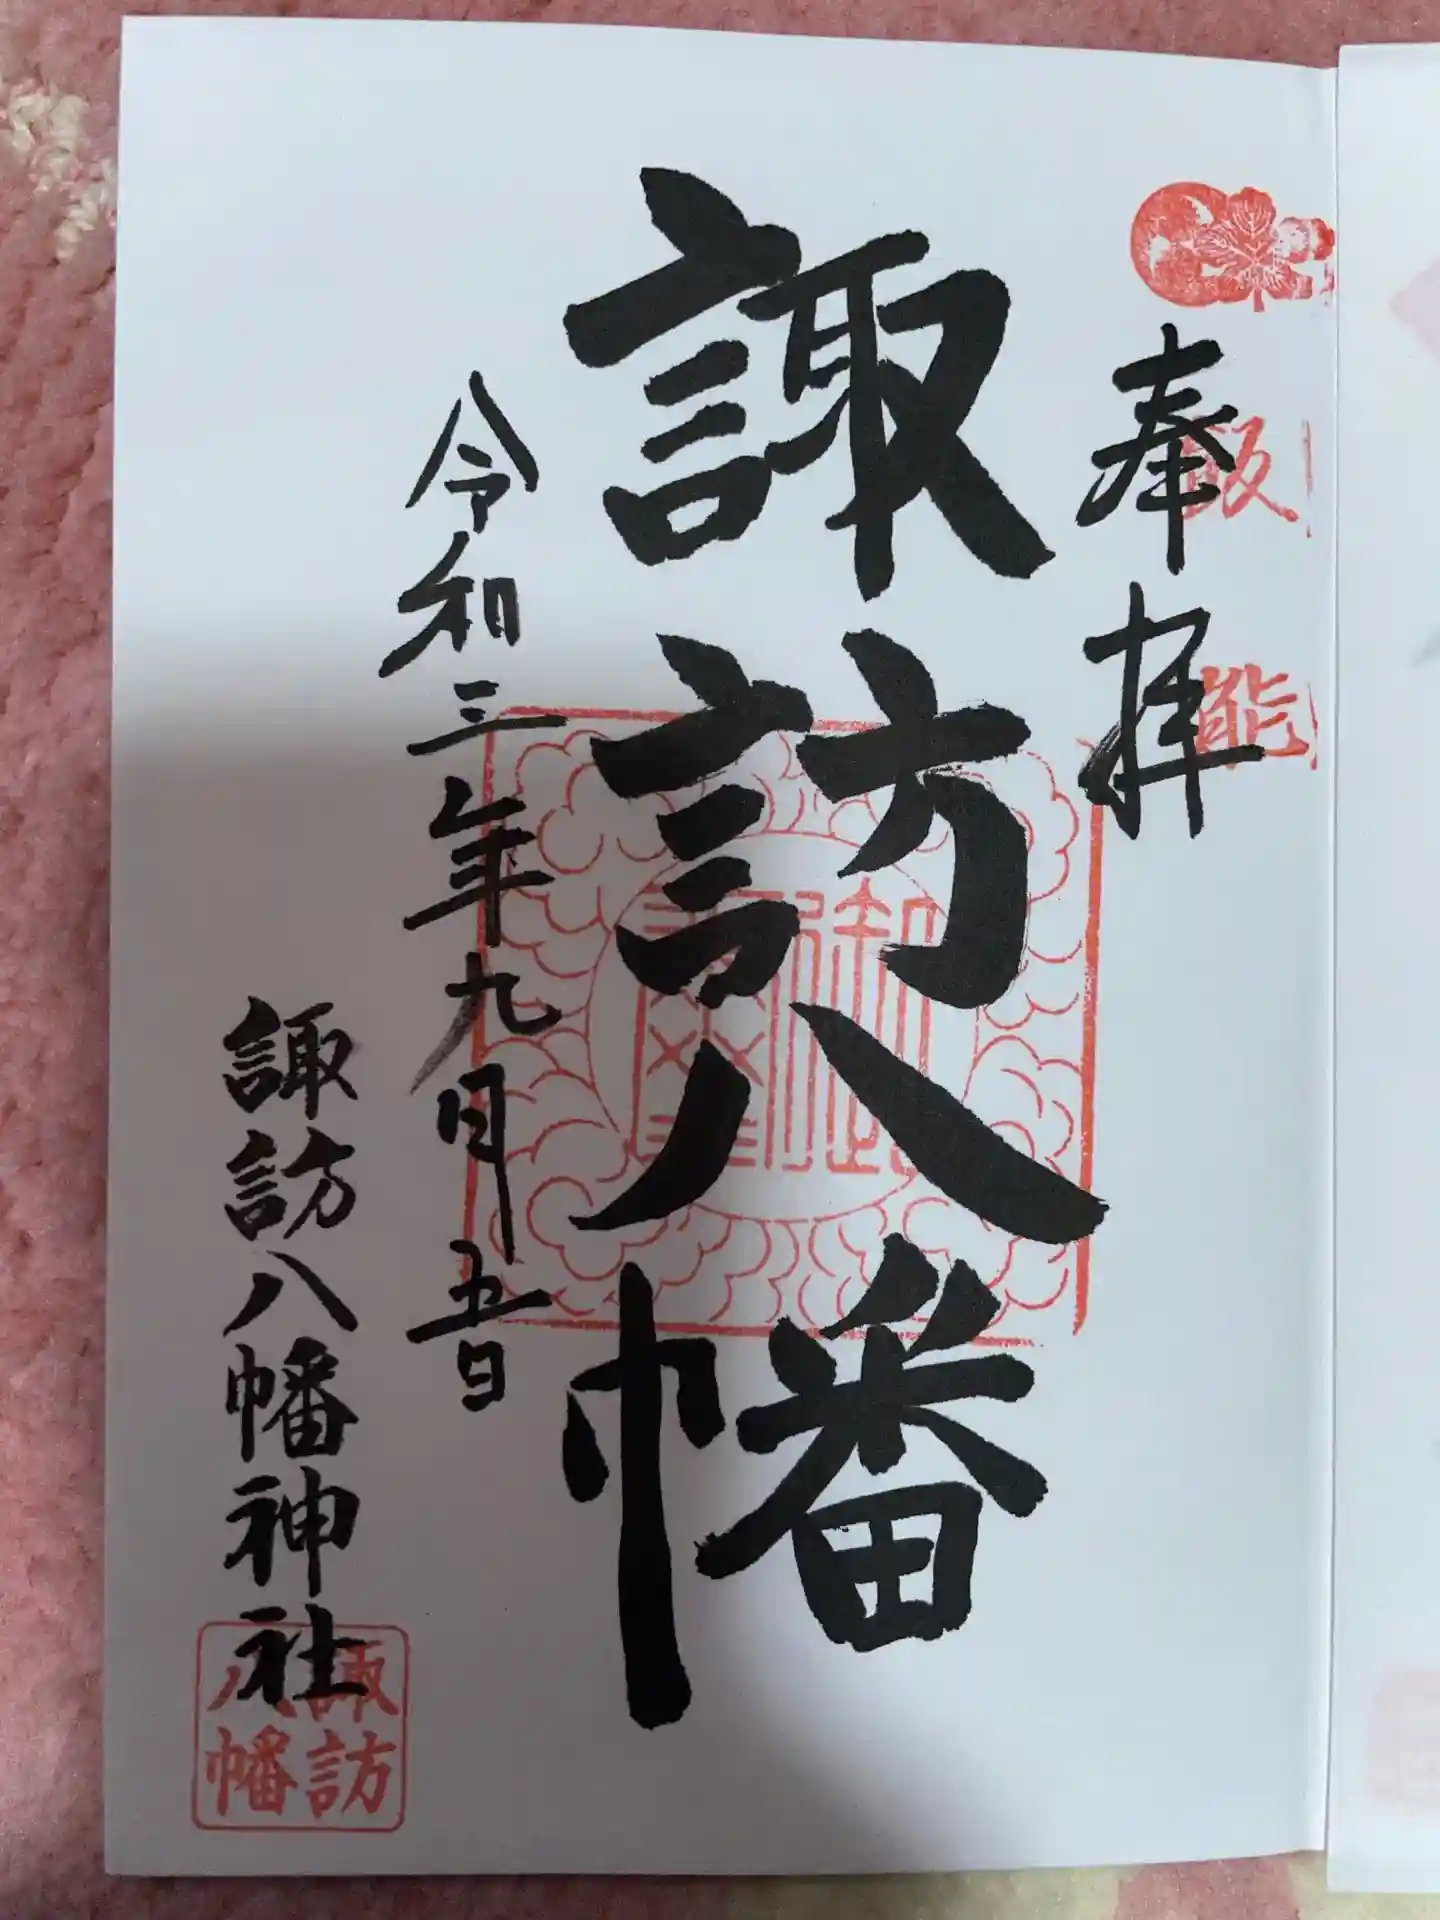 奉拝
飯能
諏訪八幡
令和三年九月五日
諏訪八幡神社
諏訪
八幡